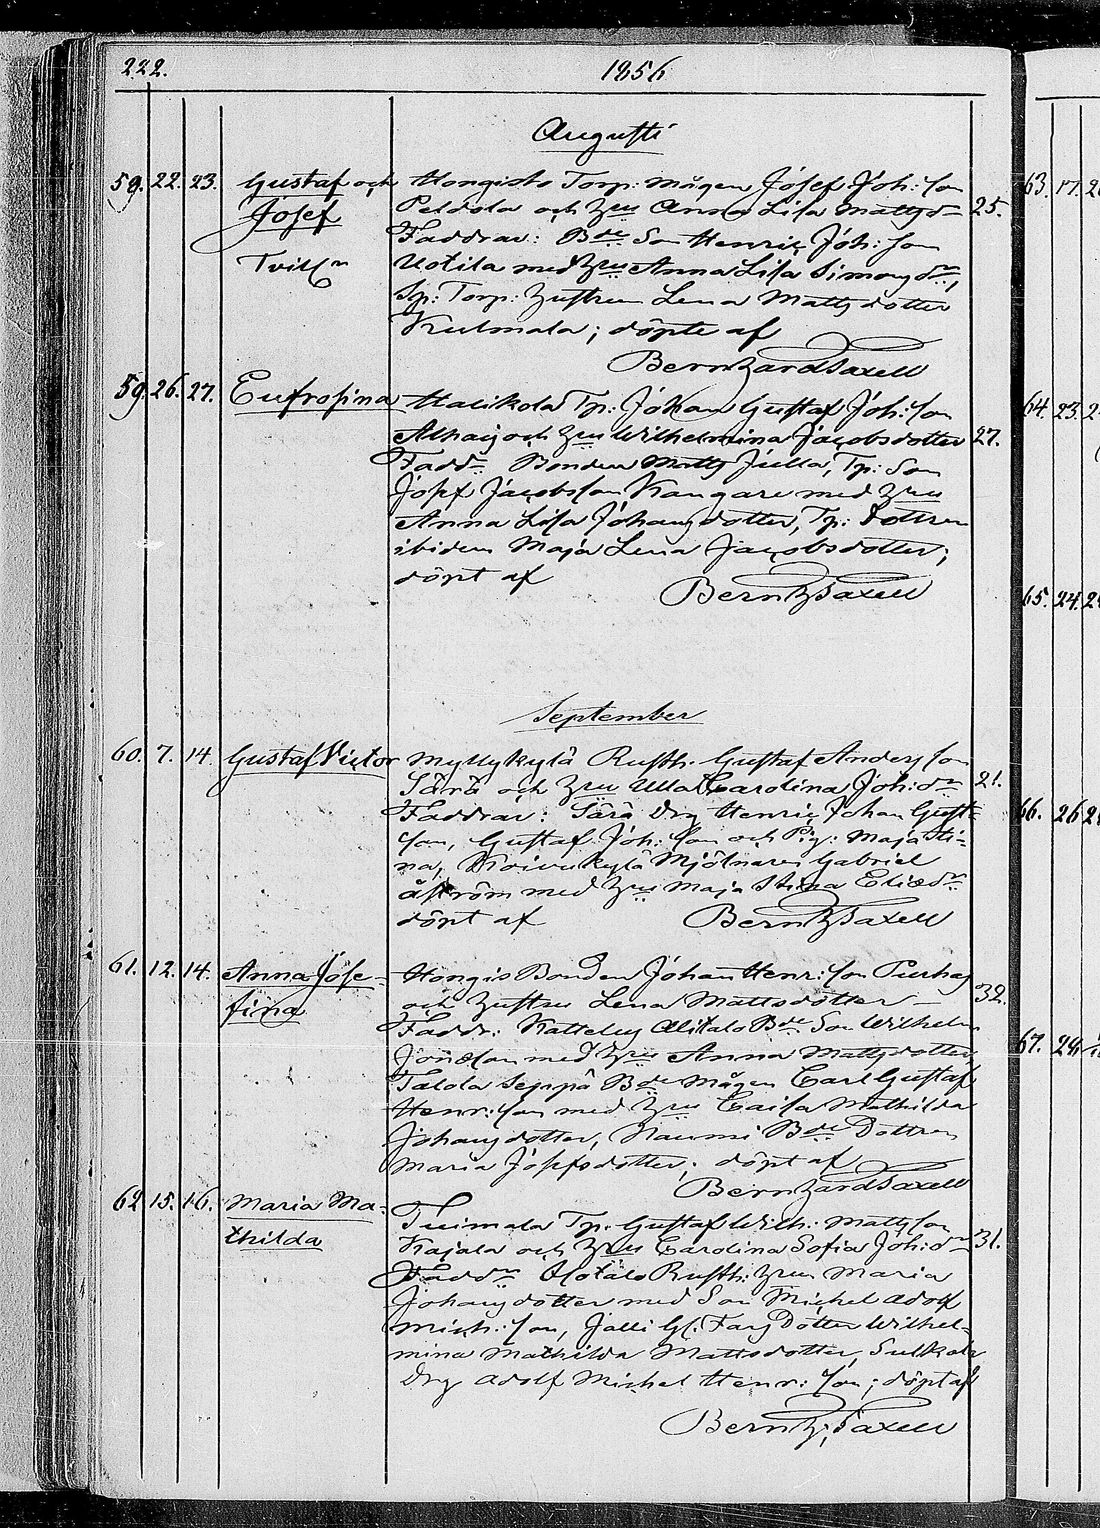 222. 1856
Augusti
59. 22. 23. Gustaf och Hongisto Torp: mågen Josef Joh: son
Josef Peldola och hru Anna Lisa Mattsdr 25.
Faddrar: Bde Son Henric Joh: son
Tvilln Uotila med hru Anna Lisa Simonsdr,
Sp: Torp: hustrun Lena Mattsdotter
Kulmala; döpte af
Bernhard Saxell
59. 26. 27. Eufrosina Halikola Tp: Johan Gustaf Joh: son
och hru Wilhelmina Jacobsdotter 27.
Faddr Bonden Matts Julla, Tp: Son
Josef Jacobsson Kangare med hru
Anna Lisa Johansdotter, Tp: Dottren
ibidem Maja Lena Jacobsdotter;
döpt af Bernh Saxell
September
60. 7. 14. Gustaf Victor Myllykylä Rusth. Gustaf Andersson
Särä och hru Ulla Carolina Joh: dr 21.
Faddrar: Särä Drg Henric Johan Gust:
son, Gustaf Joh: son och Pig: Maja Sti=
na, Koivukylä Mjölnaren Gabriel
Åström med hru Maja Stina Eliædr
döpt af Bernh Saxell
61. 12. 14. Anna Jose= Hongis Bonden Johan Henr: son Purhas
fina och hustru Lena Mattsdotter 32.
Faddr: Katteleus Alitalo Bde Son Wilhelm
Jonæson med hru Anna Mattsdotter,
Talola Seppä Bde mågen Carl Gustaf
Henr: son med hru Caisa Mathilda
Johansdotter, Naumi Bde Dottren
Maria Josefsdotter; döpt af
Bernhard Saxell
62. 15. 16. Maria Ma= Tuimala Tp: Gustaf Wilh: Mattsson
thilda Kajala och hru Carolina Sofia Joh: dr 31.
Faddr Rusth: hrun Maria
Johansdotter med Son Michel Adolf
Mich: son, Dotter Wilhel=
mina Mathilda Mattsdotter, Sulkola
Drg Adolf Michel Henr: son; döpt af
Bernh; Saxell
63. 17.
64. 23.
65. 24.
66. 26
67. 28